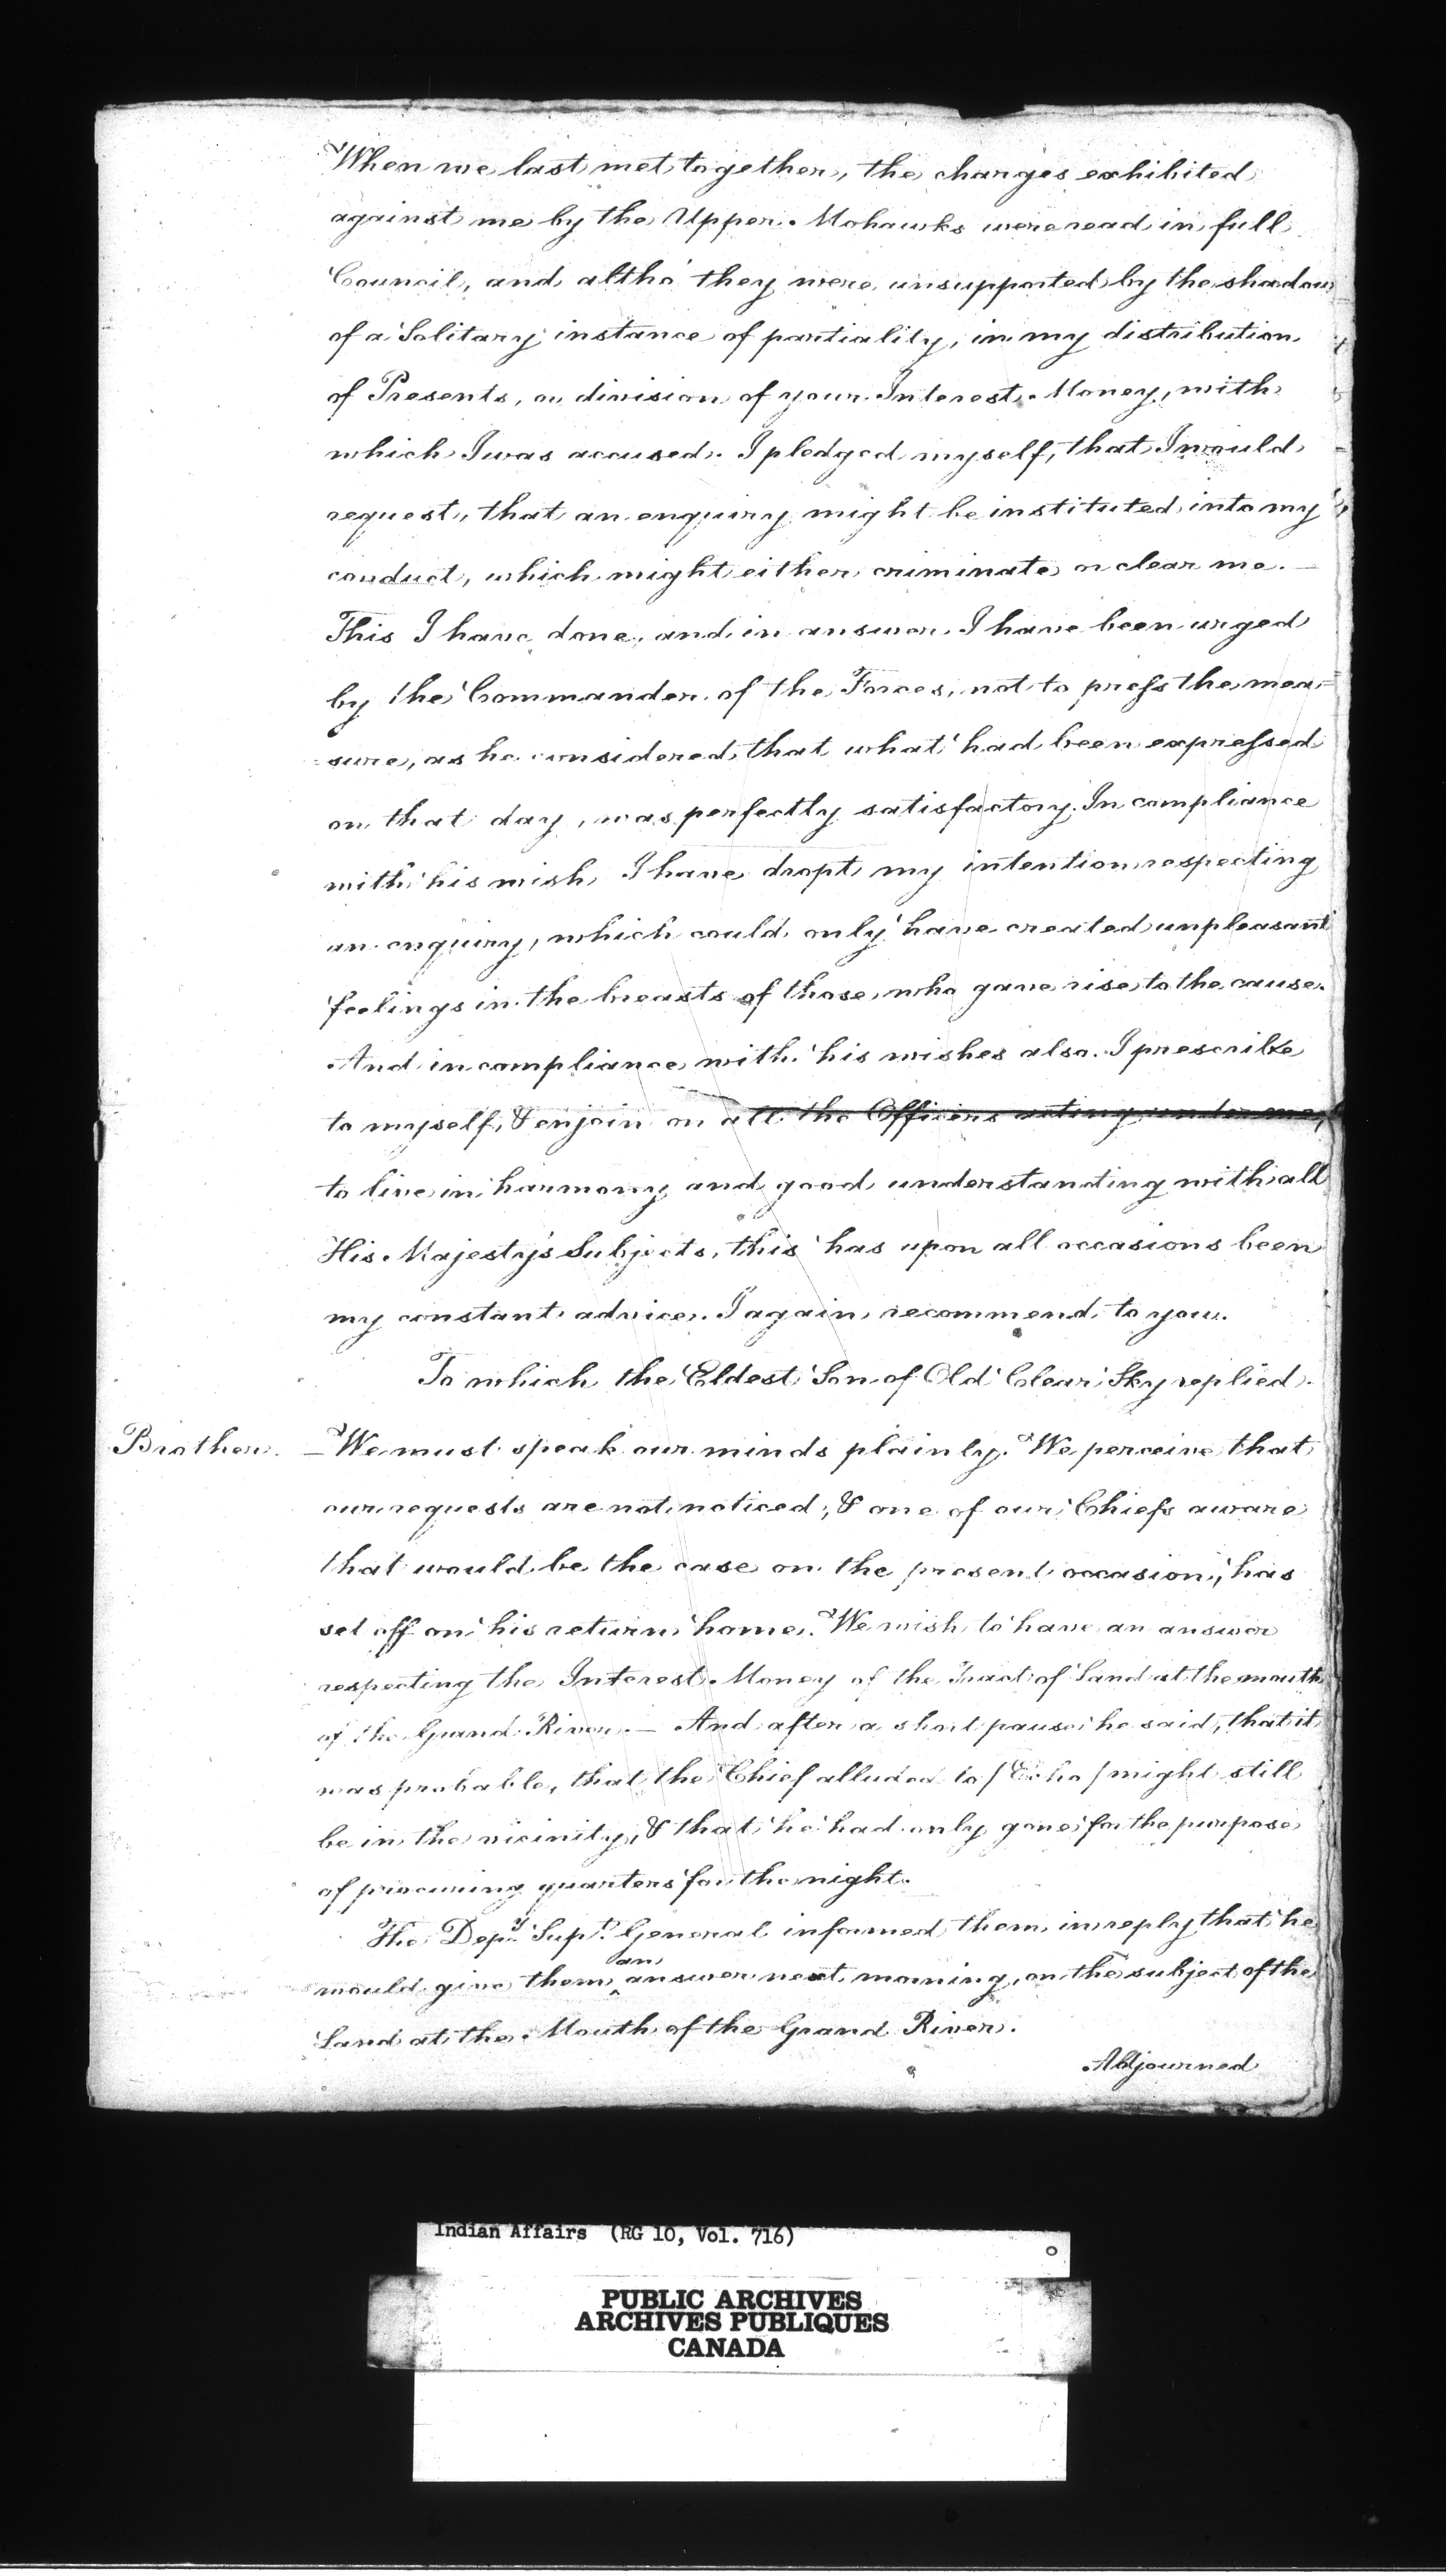 When we last met together, the charges exhibited
against me by the Upper Mohawks were read in full
Council, and altho' they were unsupported by the shadow
of a Solitary instance of partiality, in my distribution
of Presents, or division of your Interest Money, with
which I was accused. I pledged myself, that I would
request, that an enquiry might be instituted into my
conduct, which might either criminate or clear me. —
This I have done, and in answer I have been urged
by the Commander of the Forces, not to press the mea=
=sure, as he considered, that what had been expressed
on that day, was perfectly satisfactory. In compliance
with his wish, I have dropt my intention respecting
an enquiry, which could only have created unpleasant
feelings in the breasts of those, who gave rise to the cause.
And in compliance with his wishes also. I prescribe
to myself, & enjoin on all the Officers acting under me,
to live in harmony and good understanding with all
His Majesty's Subjects, this has upon all occasions been
my constant advice. I again recommend to you.
To which the Eldest Son of Old Clear Sky replied.
Brother. — We must speak our minds plainly. We perceive that
our requests are not noticed, & one of our Chiefs aware
that would be the case on the present occasion, has
set off on his return home. We wish to have an answer
respecting the Interest Money of the Tract of Land at the mouth
of the Grand River. — And after a short pause he said, that it
was probable, that the Chief alluded to / Echo / might still
be in the vicinity, & that he had only gone for the purpose
of procuring quarters for the night.
The Depy. Supt. General informed them in reply that he
would give them an answer next morning, on the subject of the
Land at the Mouth of the Grand River.
Adjourned
Indian Affairs (RG 10, Vol. 716)
PUBLIC ARCHIVES
ARCHIVES PUBLIQUES
CANADA